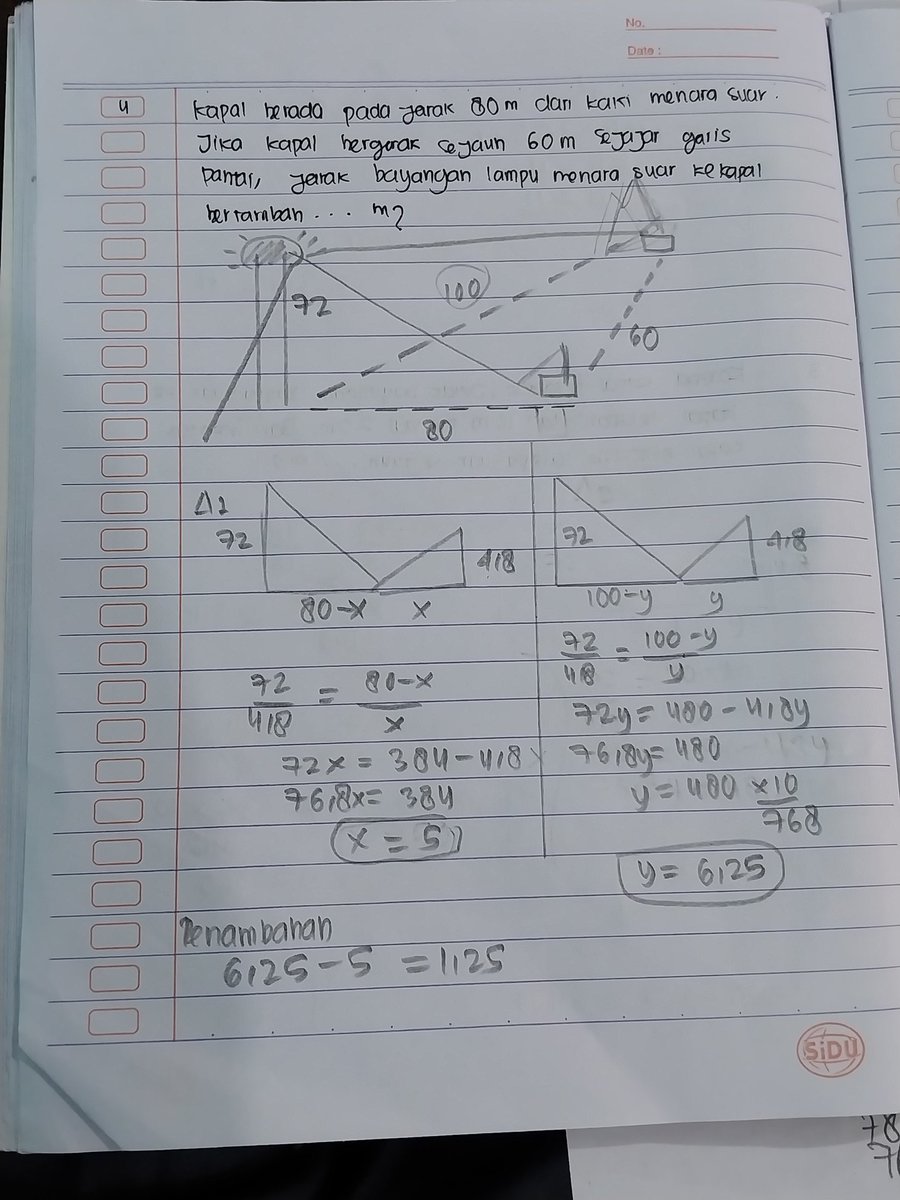 No.
Date :
4
Kapal berada pada jarak 80 m dari kaki menara suar.
Jika kapal bergerak sejauh 60 m sejajar garis
pantai, jarak bayangan lampu menara suar ke kapal
bertambah . . . m?
72
100
60
80
Δ1
72
4,8
80-x x
72
4,8
100-y y
72/4,8 = 80-x/x
72x = 384-4,8x
76,8x = 384
x = 5
72/4,8 = 100-y/y
72y = 480-4,8y
76,8y = 480
y = 480 x10/768
y = 6,25
Penambahan
6,25-5 = 1,25
SiDU
78